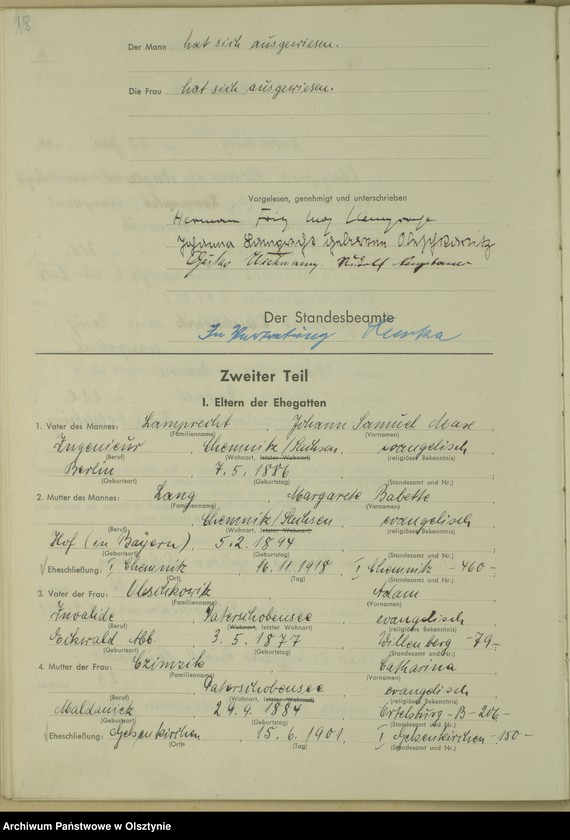 18
Der Mann hat sich ausgewiesen.
Die Frau hat sich ausgewiesen.
Vorgelesen, genehmigt und unterschrieben
Herman Fritz
Johanna Lamprecht geborene Oleschkowitz
Gustav Rudolf
Der Standesbeamte
In Vertretung
Zweiter Teil
I. Eltern der Ehegatten
1. Vater des Mannes: Lamprecht, Johann Samuel Max
(Familienname) (Vornamen)
Ingenieur, Chemnitz/Sachsen, evangelisch
(Beruf) (Wohnort, letzter Wohnort) (religiöses Bekenntnis)
Berlin, 7.5.1886
(Geburtsort) (Geburtstag) (Standesamt und Nr.)
2. Mutter des Mannes: Lang, Margarete Babette
(Familienname) (Vornamen)
Chemnitz/Sachsen, evangelisch
(Beruf) (Wohnort, letzter Wohnort) (religiöses Bekenntnis)
Hof (in Bayern), 5.2.1894
(Geburtsort) (Geburtstag) (Standesamt und Nr.)
Eheschließung: I Chemnitz, 16.11.1918, I Chemnitz -460-
(Ort) (Tag) (Standesamt und Nr.)
3. Vater der Frau: Oleschkowitz, Adam
(Familienname) (Vornamen)
Invalide, evangelisch
(Beruf) (Wohnort, letzter Wohnort) (religiöses Bekenntnis)
3.5.1877, Willenberg -79-
(Geburtsort) (Geburtstag) (Standesamt und Nr.)
4. Mutter der Frau: Catharina
(Familienname) (Vornamen)
evangelisch
(Beruf) (Wohnort, letzter Wohnort) (religiöses Bekenntnis)
Maldanietz, 1884, Ortelsburg -B- 206-
(Geburtsort) (Geburtstag) (Standesamt und Nr.)
Eheschließung: Gelsenkirchen, 15.6.1901, I Gelsenkirchen -150-
(Ort) (Tag) (Standesamt und Nr.)
Archiwum Państwowe w Olsztynie